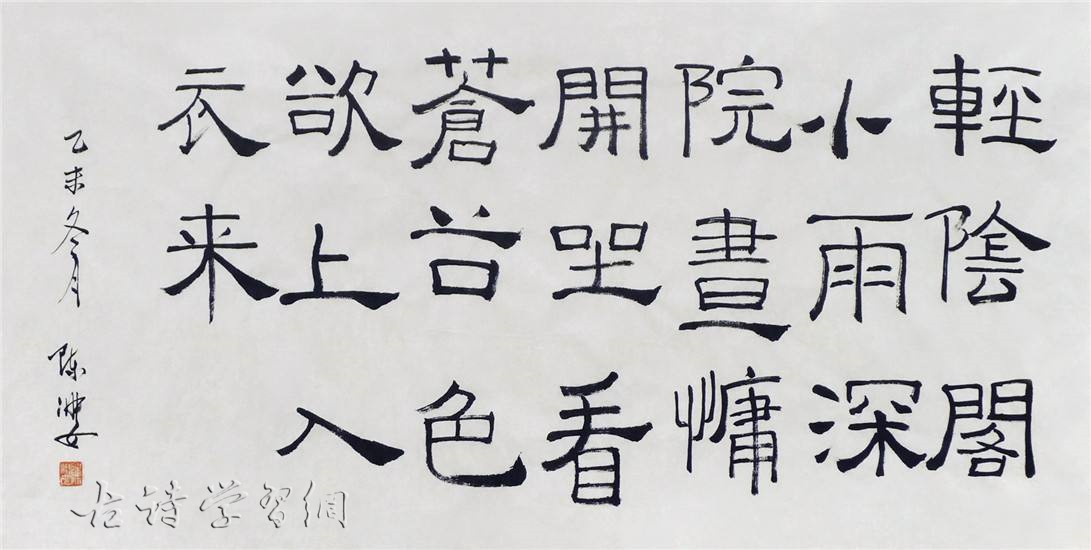 輕陰閣
小雨深
院晝慵
開坐看
蒼苔色
欲上人
衣来
乙未冬月 陈
古诗学习網